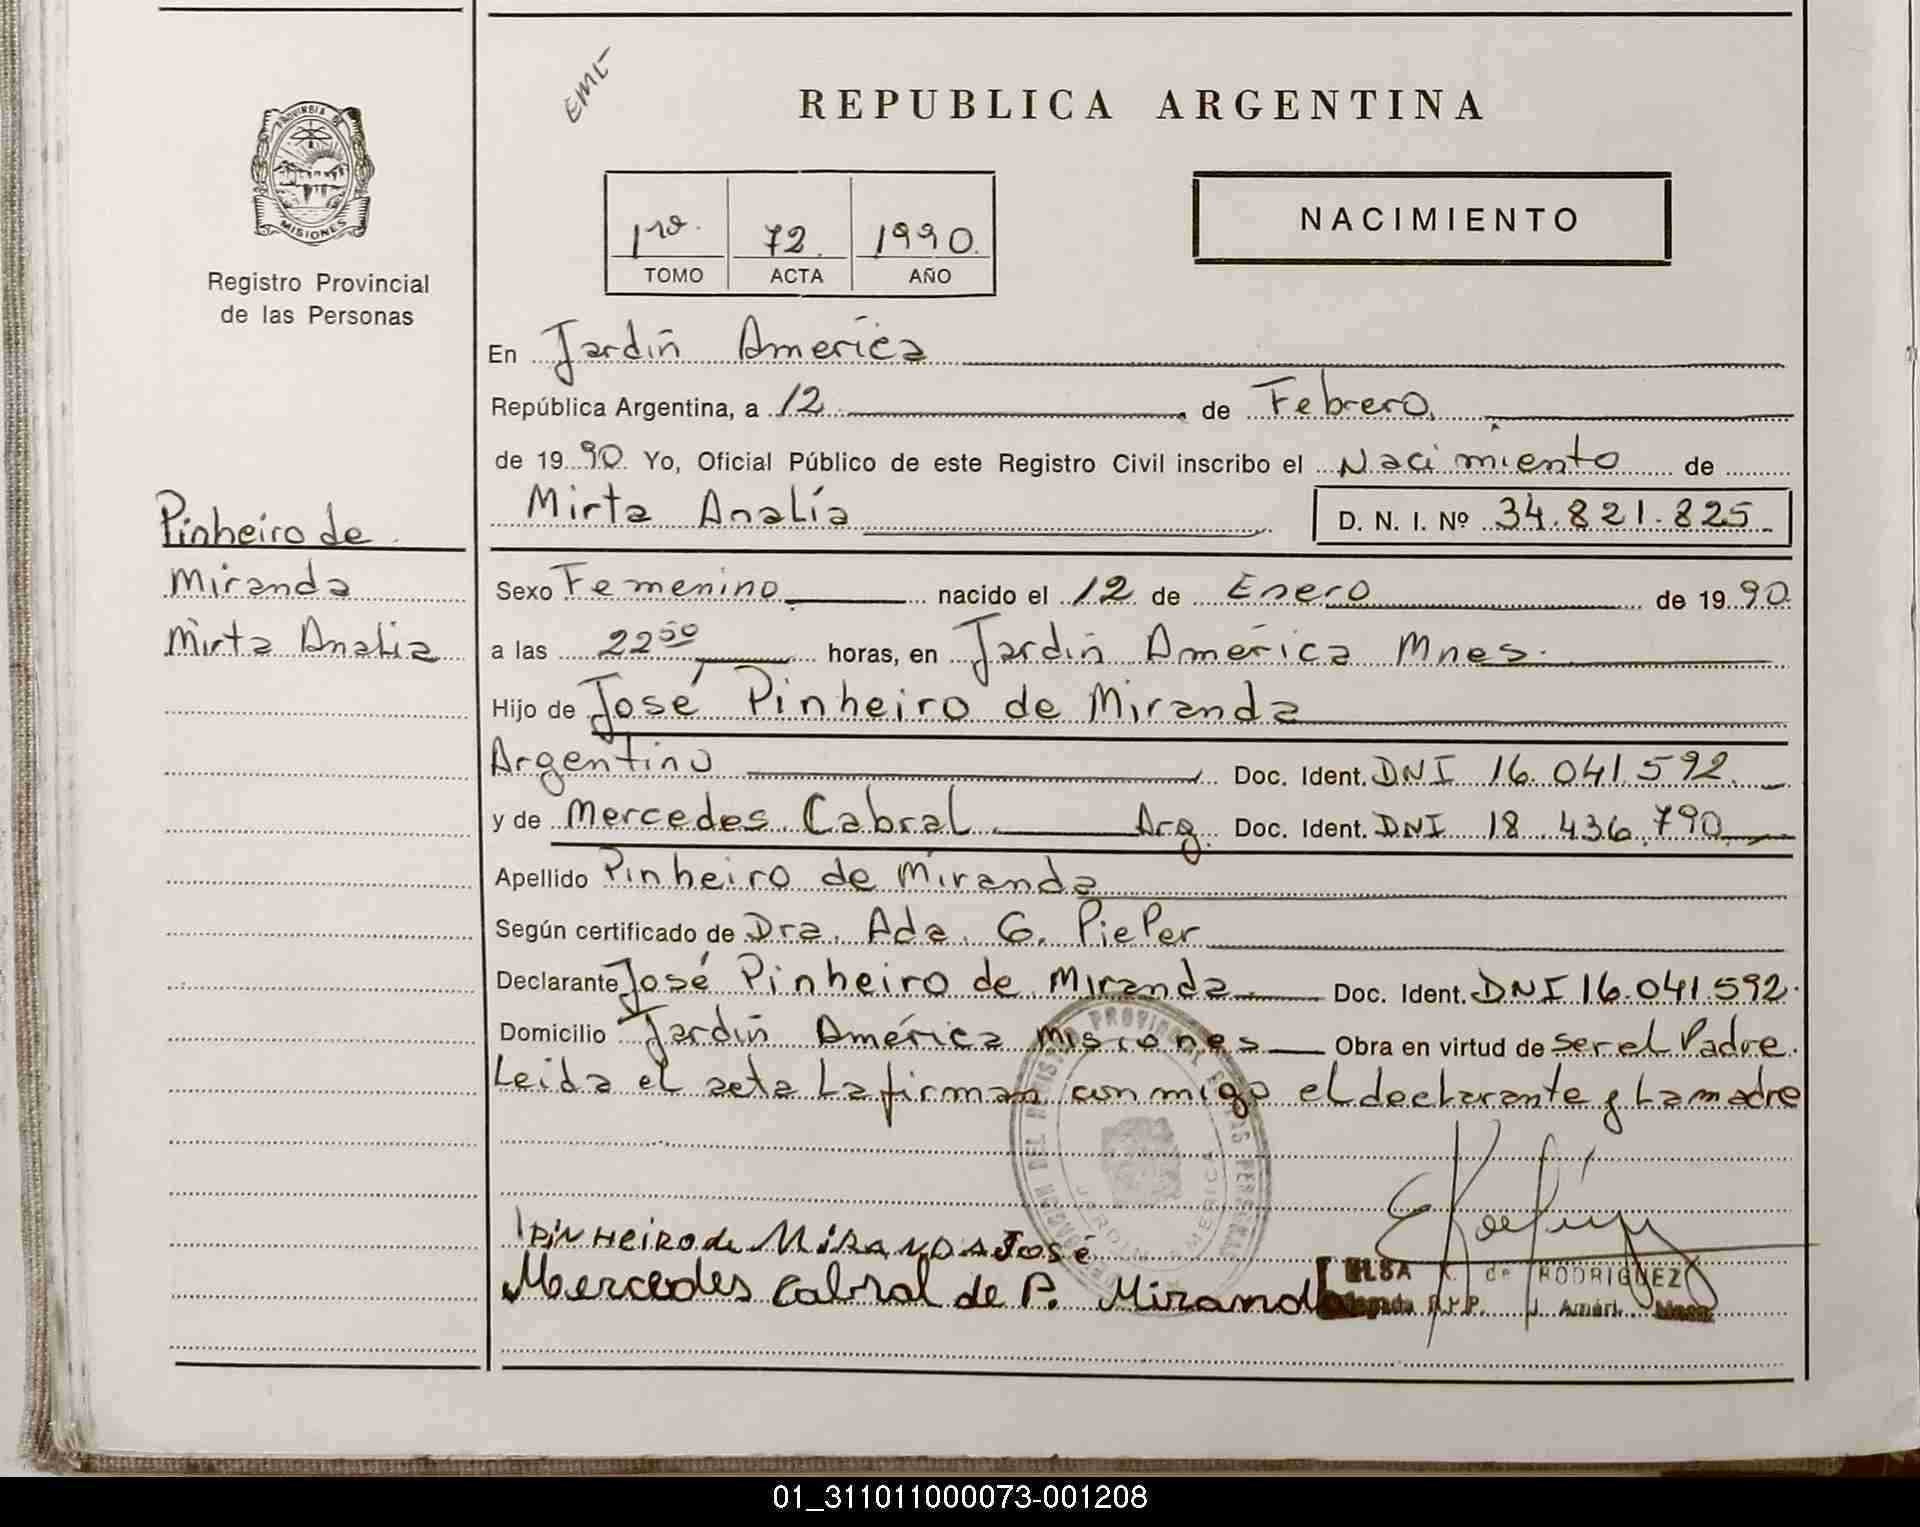 EML
REPUBLICA ARGENTINA
PROVINCIA DE
MISIONES
Registro Provincial
de las Personas
1ro. 72. 1990.
TOMO ACTA AÑO
NACIMIENTO
En Jardín América
República Argentina, a 12 de Febrero.
de 1990. Yo, Oficial Público de este Registro Civil inscribo el Nacimiento de
Mirta Analía D. N. I. Nº 34.821.825
Pinheiro de
Miranda
Mirta Analia
Sexo Femenino nacido el 12 de Enero de 1990.
a las 22 50 horas, en Jardín América Mnes.
Hijo de José Pinheiro de Miranda
Argentino Doc. Ident. DNI 16.041.592.
y de Mercedes Cabral Arg. Doc. Ident. DNI 18.436.790
Apellido Pinheiro de Miranda
Según certificado de Dra. Ada. G. Pieper
Declarante José Pinheiro de Miranda Doc. Ident. DNI 16.041.592.
Domicilio Jardín América Misiones Obra en virtud de ser el Padre.
Leida el acta la firman conmigo el declarante y la madre
PiNHeiRo de MiRANDA José
Mercedes Cabral de P. Miranda
ELSA K. de RODRIGUEZ
Delegada R.P.P. J. Améri. Mnes.
01_311011000073-001208